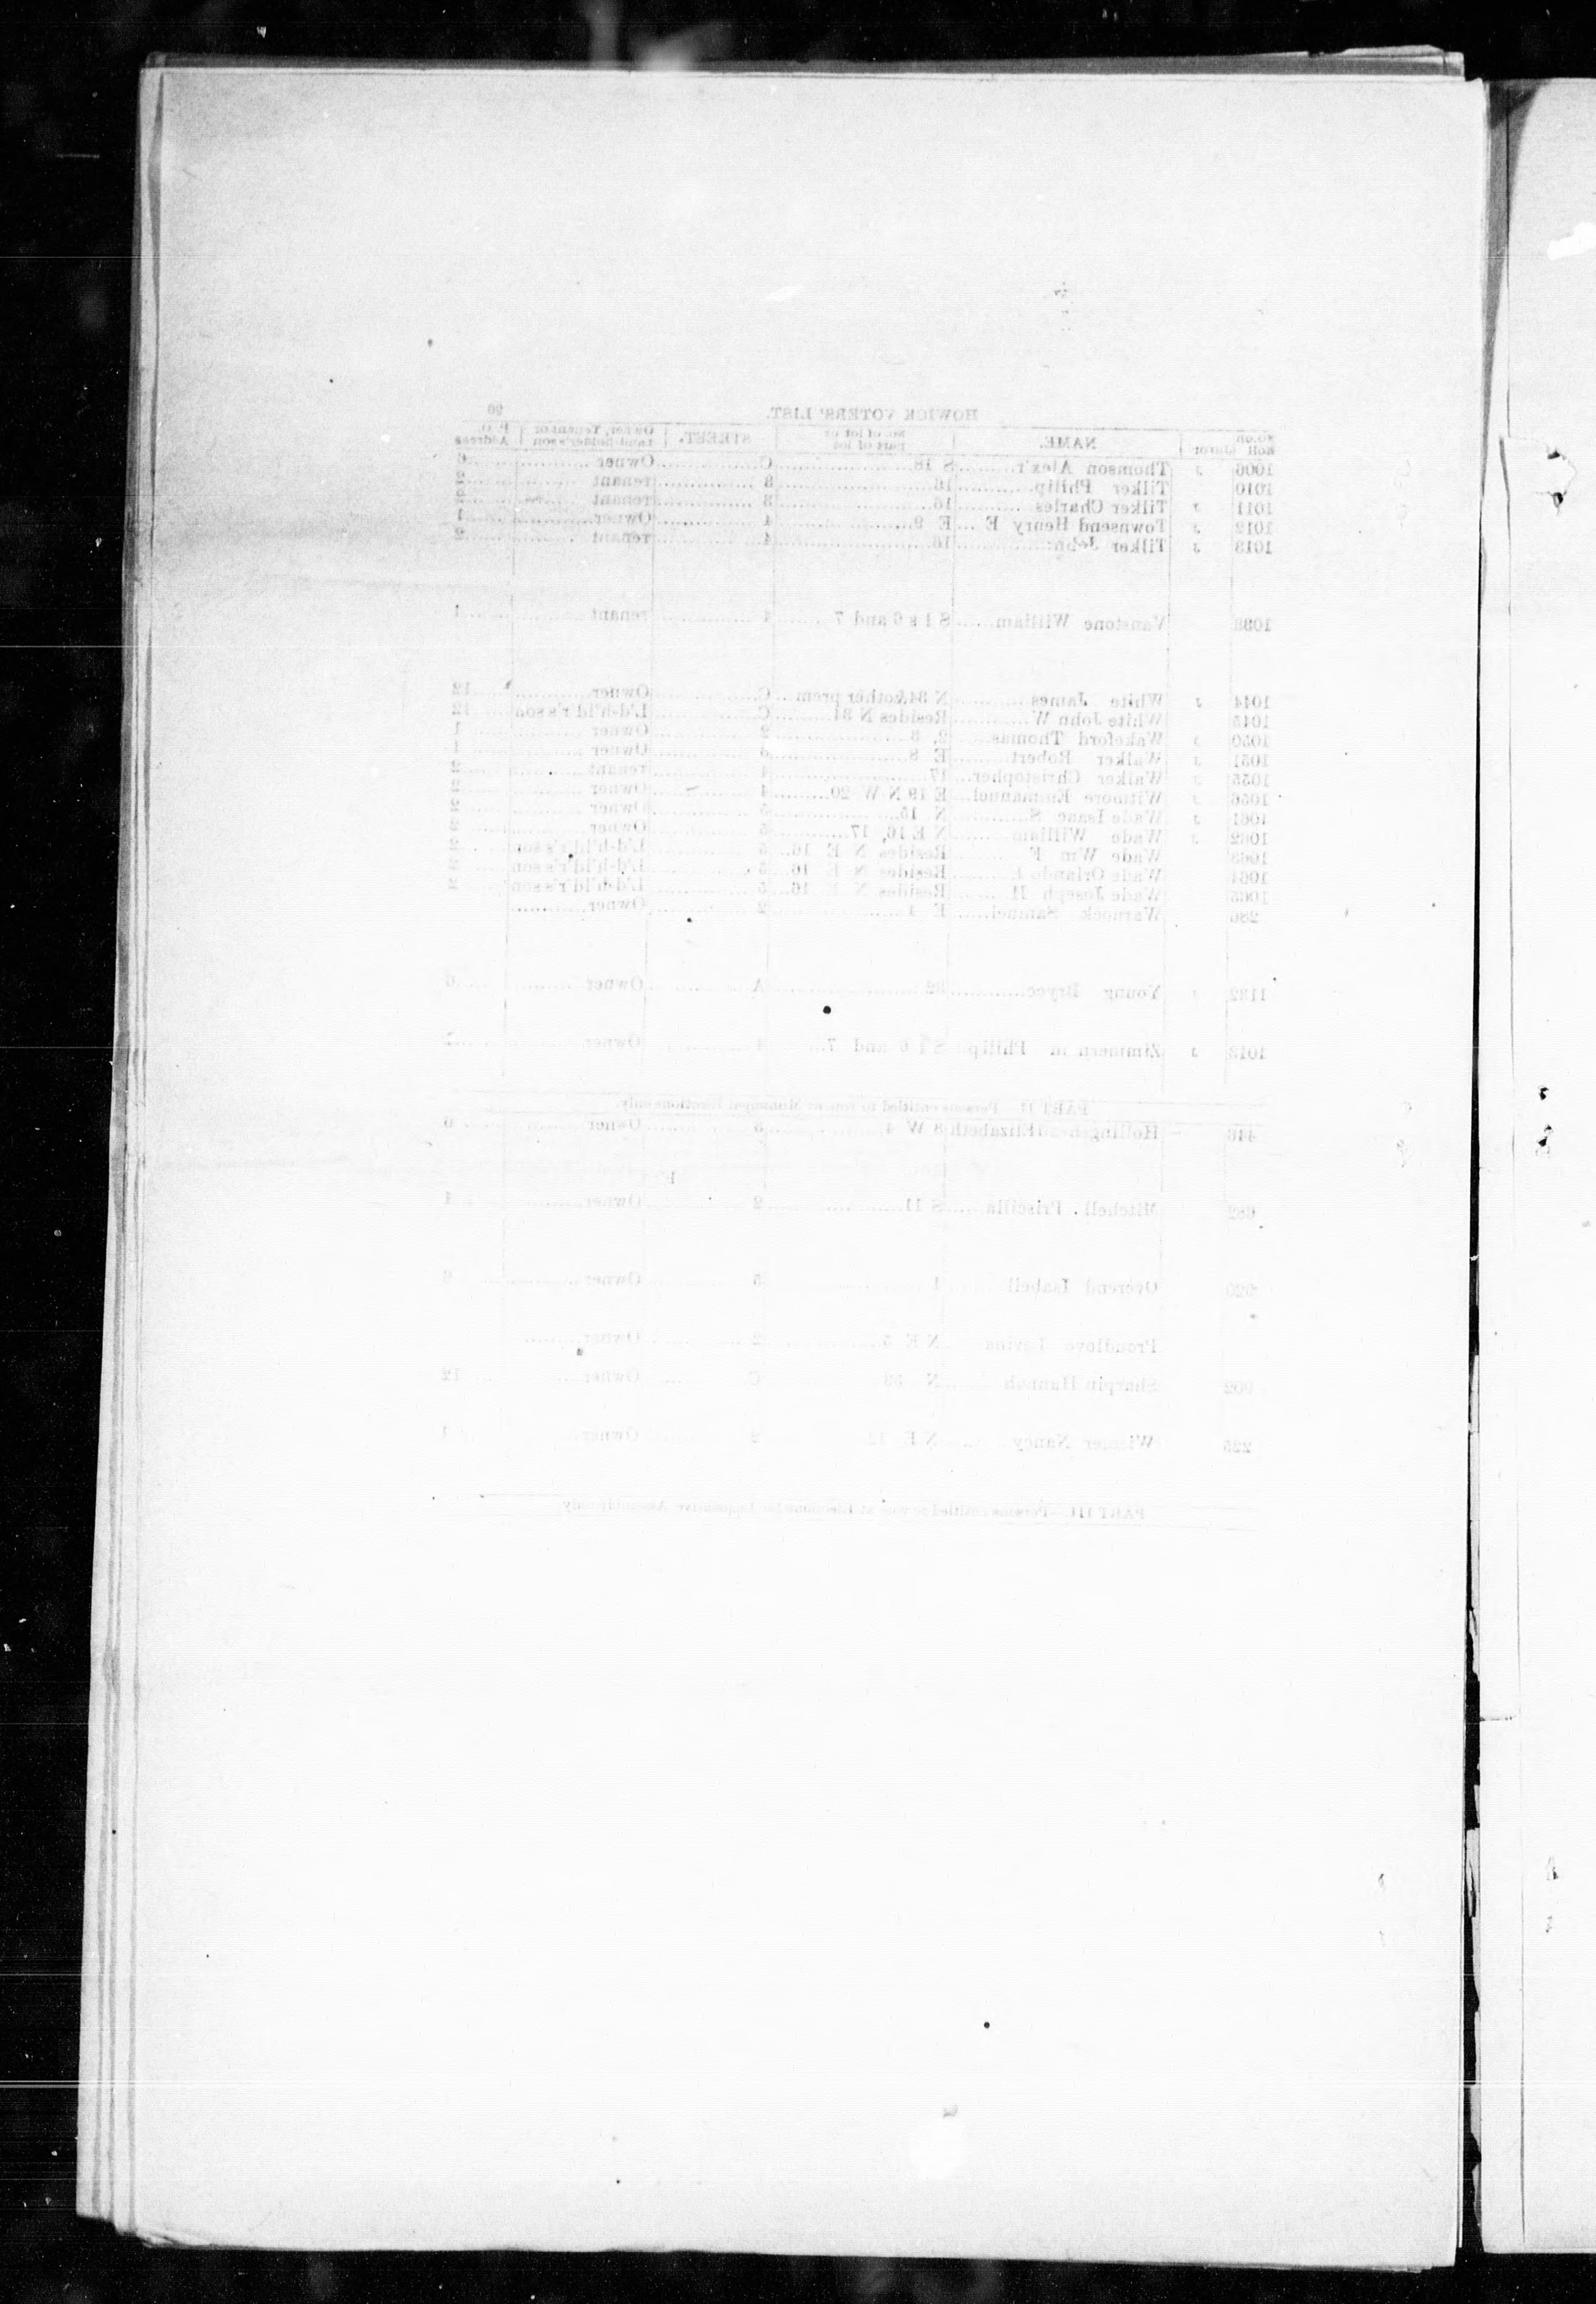 HOWICK VOTERS' LIST.
No. on Roll Juror NAME. No. of lot or part of lot STREET. Owner, Tenant or Land-holder's son P. O. Address
J Thomson Alex'r S 18 C Owner 6
1010 Tilker Philip 16 3 Tenant 2
1011 J Tilker Charles 16 3 Tenant 2
1012 J Townsend Henry E E 9 4 Owner 1
1013 J Tilker John 16 4 Tenant 2
1033 Vanstone William S 1s 6 and 7 4 Tenant 1
1044 J White James N 34 & other prem C Owner 12
1045 White John W Resides N 34 C L'd-h'ld'r's son 12
1050 J Wakeford Thomas 2, 3 2 Owner 1
1051 J Walker Robert E 8 3 Owner 1
1055 J Walker Christopher 17 4 Tenant 2
1056 J Witmore Emmanuel E 19 N W 20 4 Owner 2
1061 J Wade Isaac S N 15 5 Owner 2
1062 J Wade William N E 16, 17 5 Owner 2
1063 Wade Wm F Resides N E 16 5 L'd-h'ld'r's son 2
1064 Wade Orlando Resides N E 16 5 L'd-h'ld'r's son 2
1065 Wade Joseph H Resides N E 16 5 L'd-h'ld'r's son 2
286 Warnock Samuel E 4 2 Owner
1132 J Young Bryce 32 A Owner 6
J Zimmerman Philip S 1 6 and 7 4 Owner 2
PART II Persons entitled to vote at Municipal Elections only.
446 Elizabeth W 4 Owner 6
682 Mitchell Priscilla S 11 2 Owner 1
Overend Isabell 1 5 Owner 6
Proudlove Lavina N E 5 2 Owner
Sharpin Hannah N 33 C Owner 12
Nancy N E 12 2 Owner 1
PART III.—Persons entitled to vote at Elections for Legislative Assembly only.